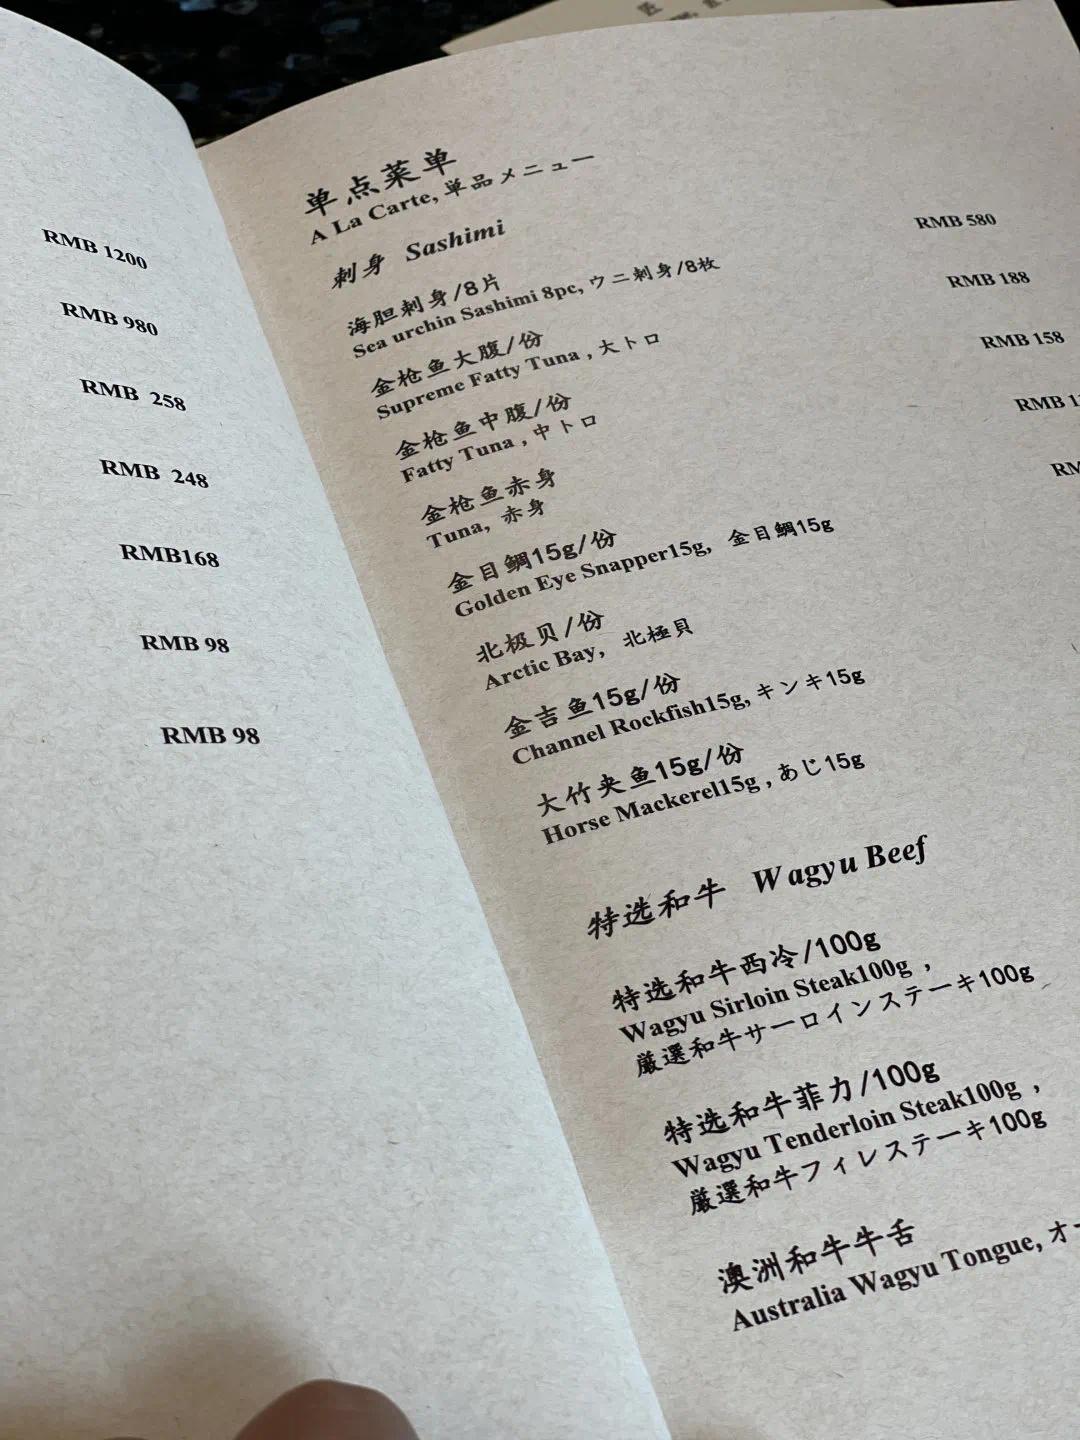 RMB 1200
RMB 980
RMB 258
RMB 248
RMB168
RMB 98
RMB 98
单点菜单
A La Carte, 単品メニュー
刺身 Sashimi
海胆刺身/8片
Sea urchin Sashimi 8pc, ウニ刺身/8枚
RMB 580
金枪鱼大腹/份
Supreme Fatty Tuna , 大トロ
RMB 188
金枪鱼中腹/份
Fatty Tuna , 中トロ
RMB 158
金枪鱼赤身
Tuna, 赤身
RMB
金目鲷15g/份
Golden Eye Snapper15g, 金目鯛15g
北极贝/份
Arctic Bay, 北極貝
金吉鱼15g/份
Channel Rockfish15g, キンキ15g
大竹夹鱼15g/份
Horse Mackerel15g , あじ15g
特选和牛 Wagyu Beef
特选和牛西冷/100g
Wagyu Sirloin Steak100g ,
厳選和牛サーロインステーキ100g
特选和牛菲力/100g
Wagyu Tenderloin Steak100g ,
厳選和牛フィレステーキ100g
澳洲和牛牛舌
Australia Wagyu Tongue,